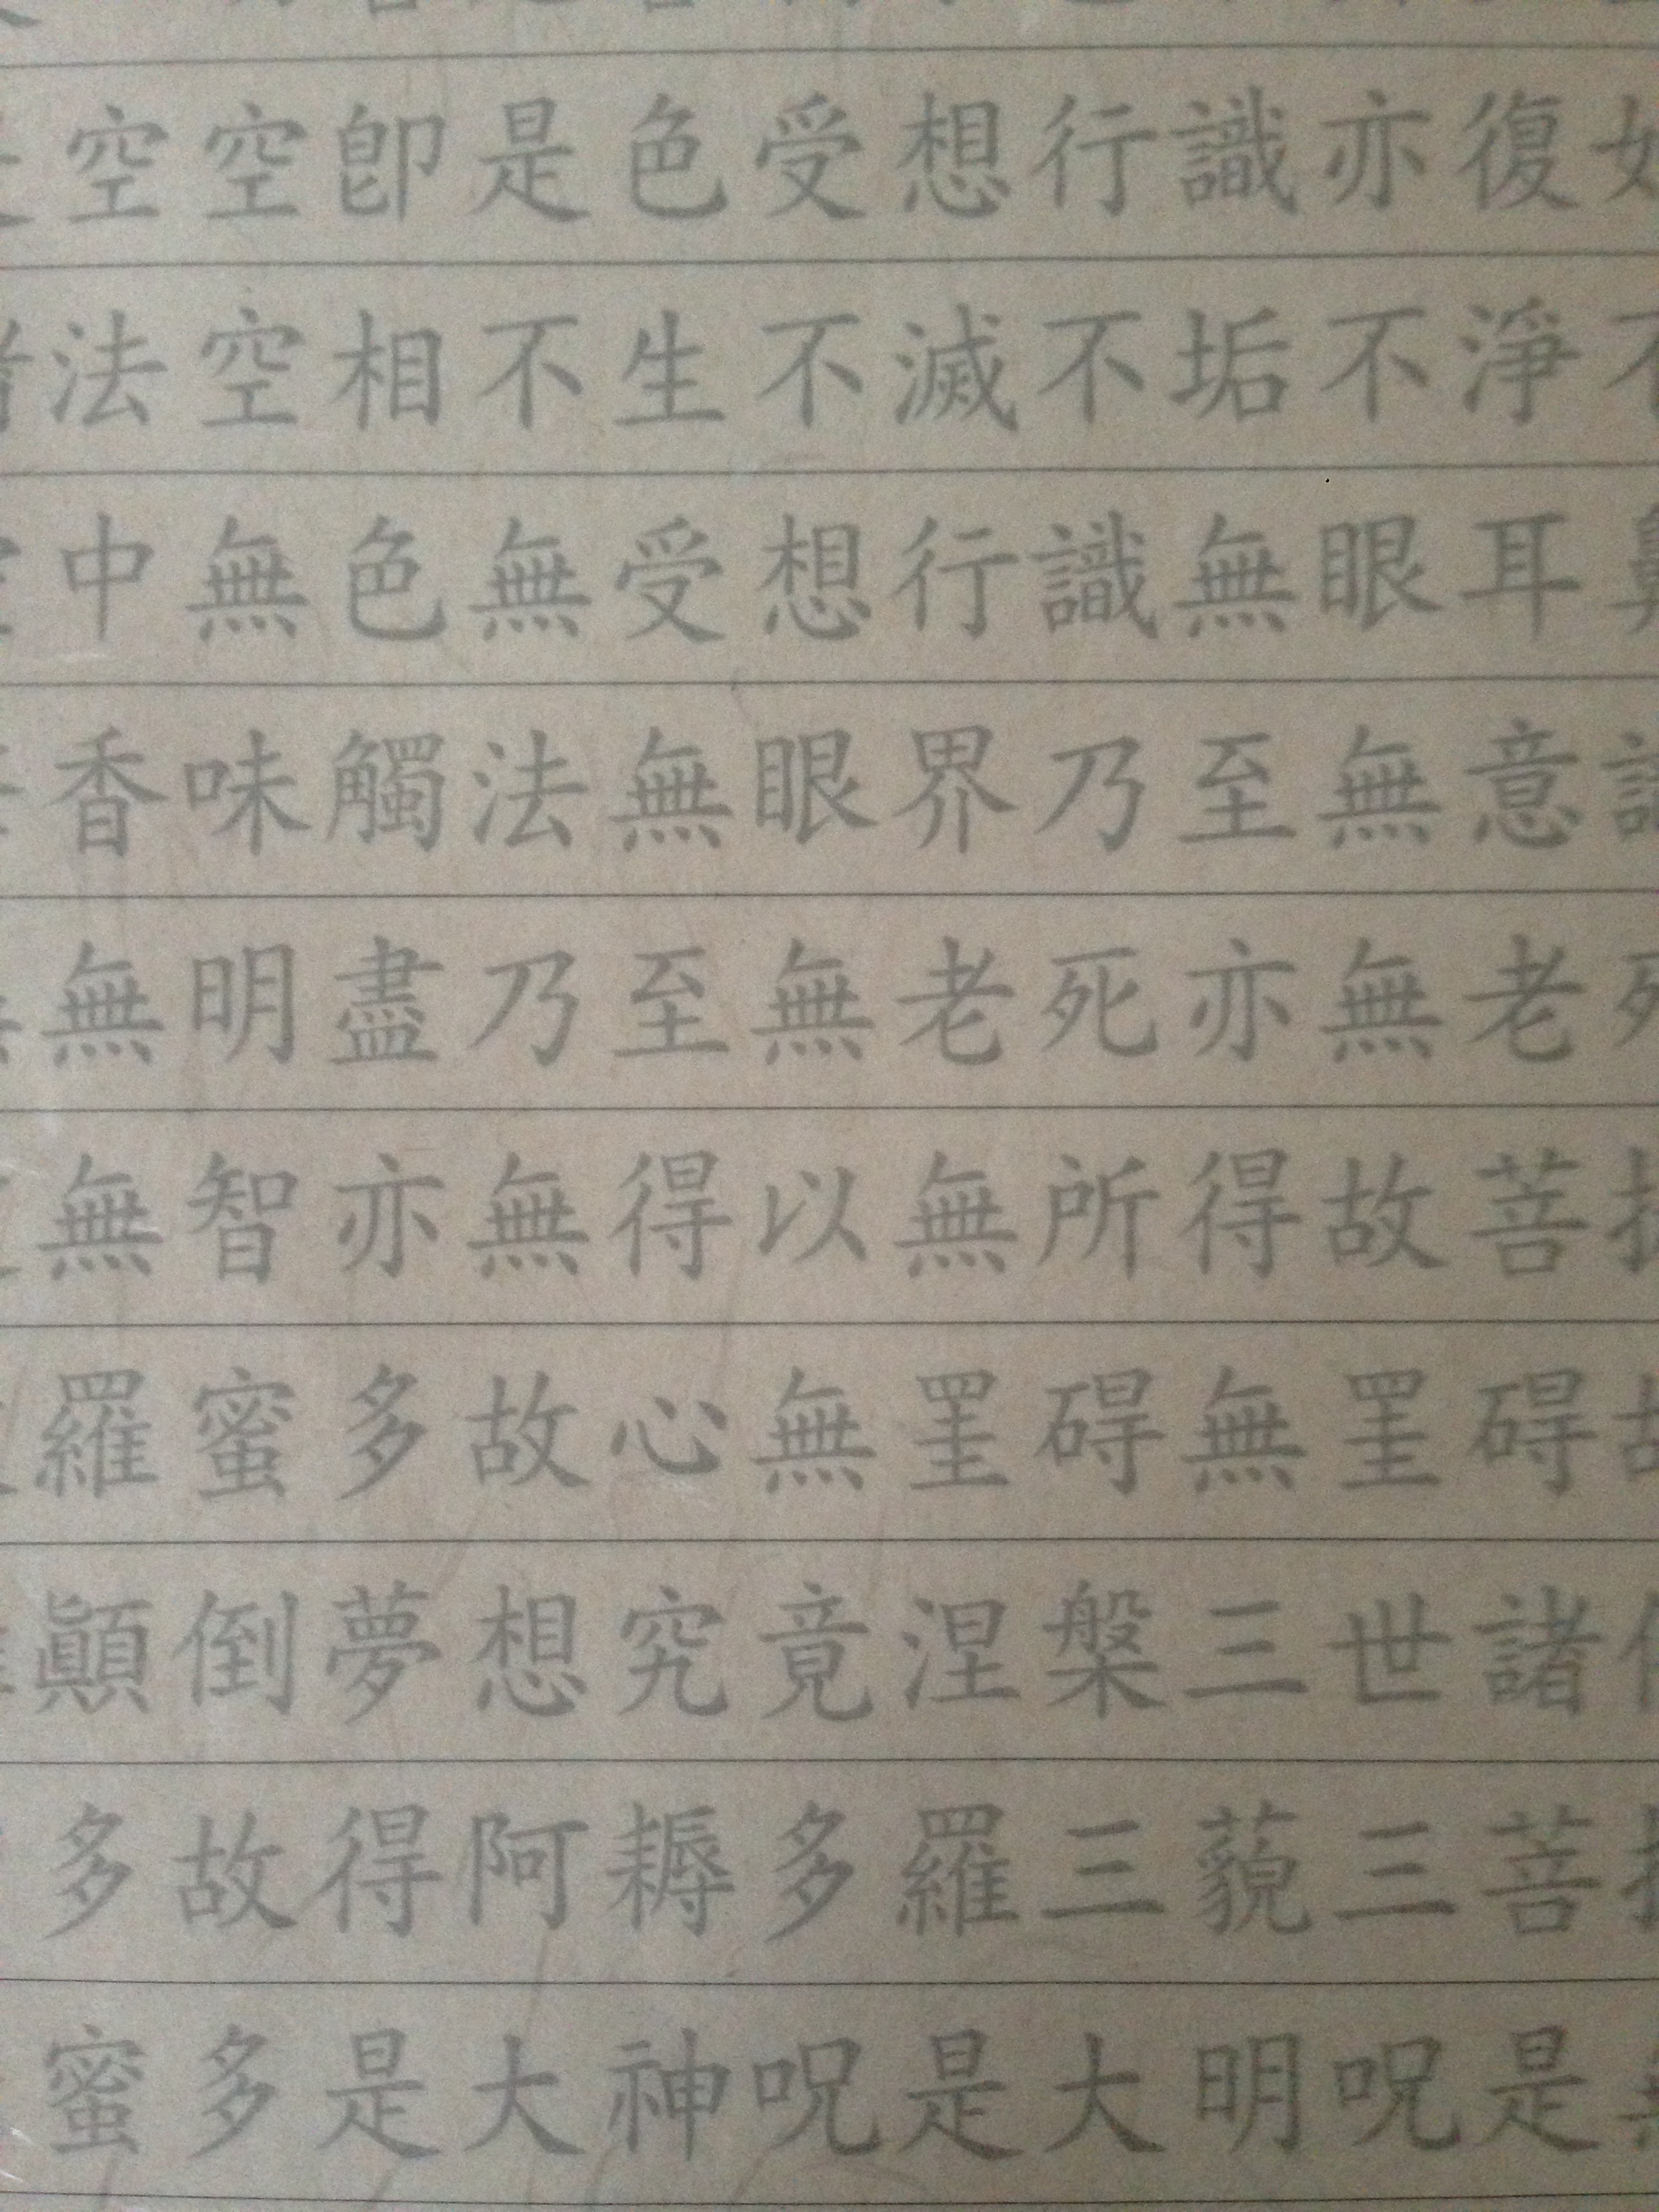 空空卽是色受想行識亦復
法空相不生不滅不垢不淨
中無色無受想行識無眼耳
香味觸法無眼界乃至無意
無明盡乃至無老死亦無老
無智亦無得以無所得故菩
羅蜜多故心無罣碍無罣碍
顚倒夢想究竟涅槃三世諸
多故得阿耨多羅三藐三菩
蜜多是大神呪是大明呪是